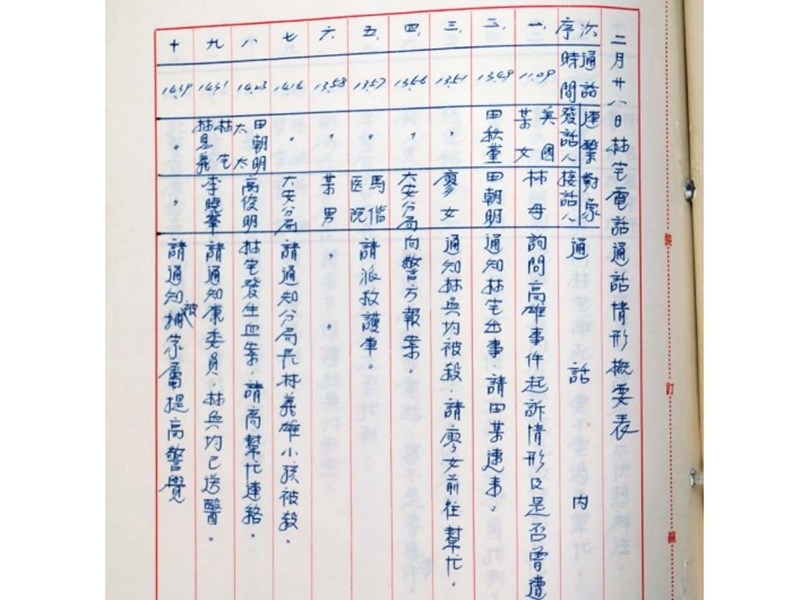 二月廿八日林宅電話通話情形概要表
次序 通話時間 連繫對象 發話人 接話人 通話內
一 11.09 美國某女 林母 詢問高雄事件起訴情形及是否曾遭
二 13.49 田秋堇 田朝明 通知林宅出事,請田某速來。
三 13.51 〃 廖女 通知林奐均被殺,請廖女前往幫忙。
四 13.56 〃 大安分局 向警方報案。
五 13.57 〃 馬偕医院 請派救護車。
六 13.58 〃 某男 〃 〃
七 14.16 〃 大安分局 請通知分局長林義雄小孩被殺。
八 14.23 田朝明太太 高俊明 林宅發生血案,請高幫忙連絡。
九 14.31 林宅 李曉峯 請通知康委員,林奐均已送醫。
十 14.39 〃 〃 請通知被捕家屬提高警覺
裝
訂
線